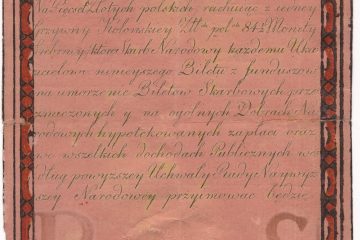 Na Pięćset Złotych polskich rachuiąc z iedney
grzywny Kolońskiey Złt. pol. 84½ Monety
srebrney, które Skarb Narodowy każdemu Oka-
zicielowi ninieyszego Biletu z funduszow
na umorzenie Biletow Skarbowych prze-
znaczonych y na ogolnych Dobrach Na-
rodowych hypotekowanych zapłaci oraz
we wszelkich dochodach Publicznych we-
dług powyższey Uchwały Rady Naywyż-
szey Narodowey przyimować będzie